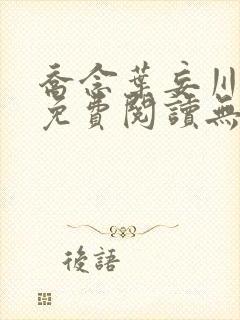 喬念葉妄川
免費閱讀無
後語